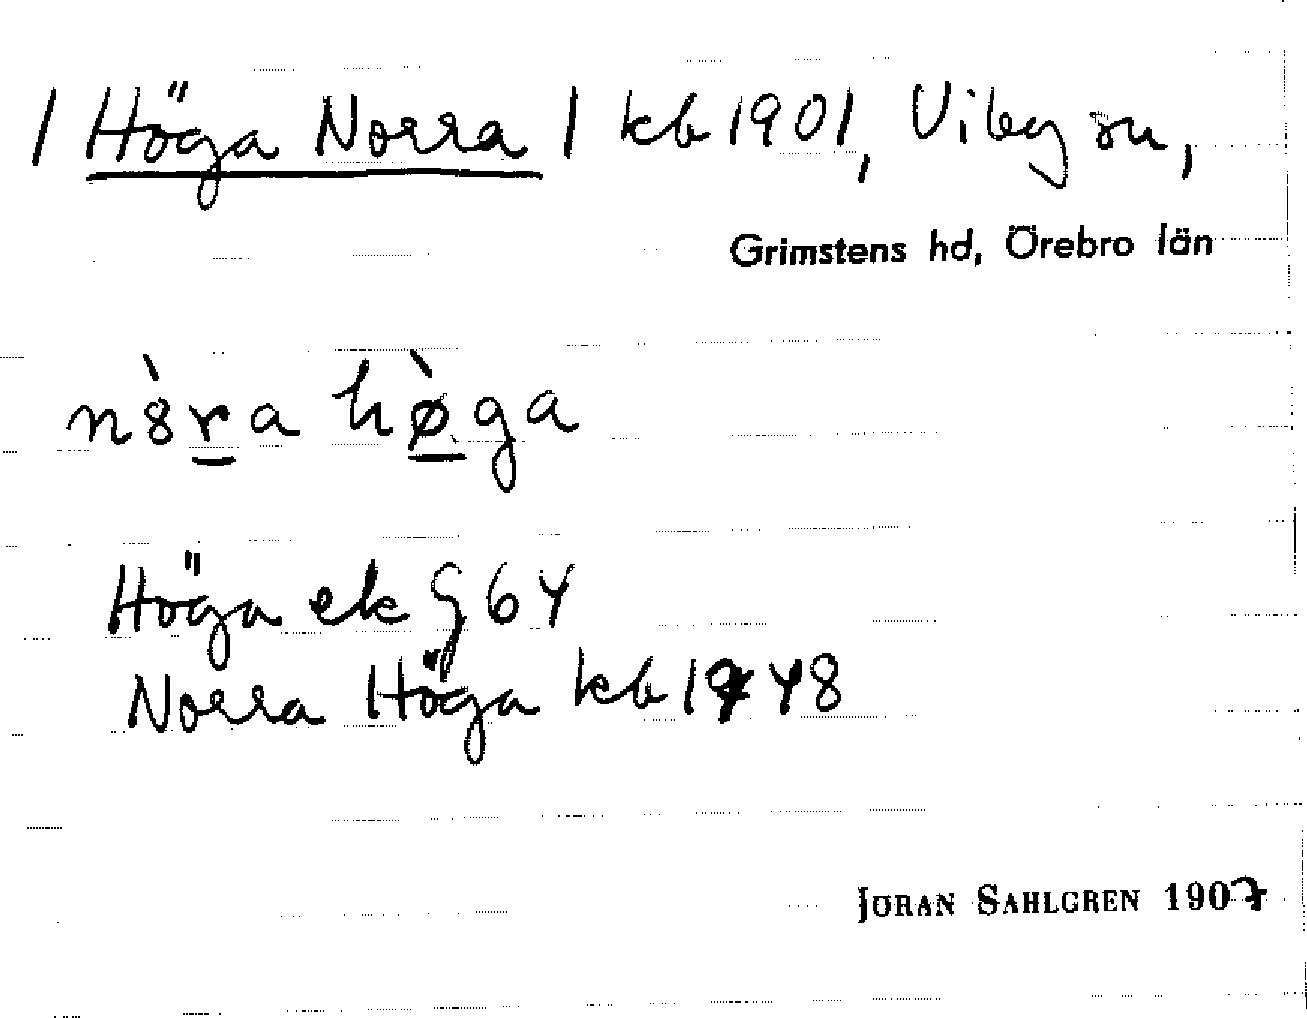 / Höga Norra / kb 1901, Viby sn,
Grimstens hd, Örebro län
n8̀r̲a hø̲̀ga
Höga ek § 64
Norra Höga kb 1948
JÖRAN SAHLGREN 1907